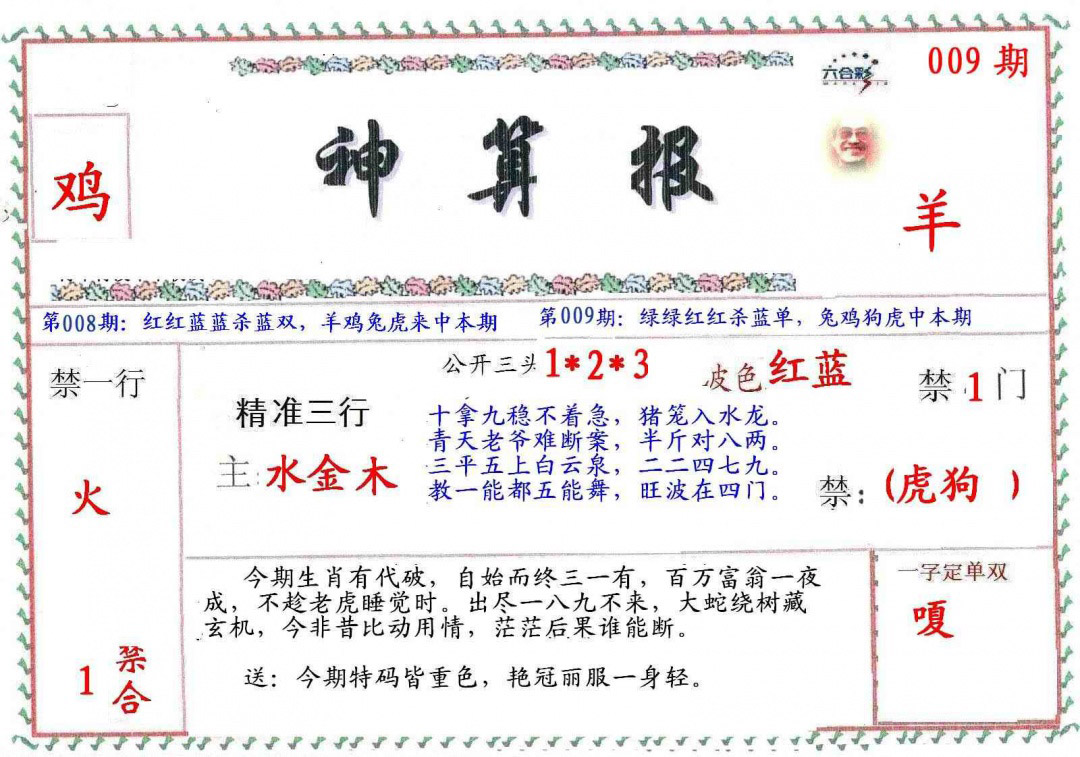 009 期
六合彩
神算报
鸡
羊
第008期：红红蓝蓝杀蓝双，羊鸡兔虎来中本期
第009期：绿绿红红杀蓝单，兔鸡狗虎中本期
禁一行
火
1 禁合
精准三行
主：水金木
公开三头 1*2*3
波色 红蓝
十拿九稳不着急，猪笼入水龙。
青天老爷难断案，半斤对八两。
三平五上白云泉，二二四七九。
教一能都五能舞，旺波在四门。
禁 1 门
禁：(虎狗 )
今期生肖有代破，自始而终三一有，百万富翁一夜
成，不趁老虎睡觉时。出尽一八九不来，大蛇绕树藏
玄机，今非昔比动用情，茫茫后果谁能断。
送：今期特码皆重色，艳冠丽服一身轻。
一字定单双
嘎